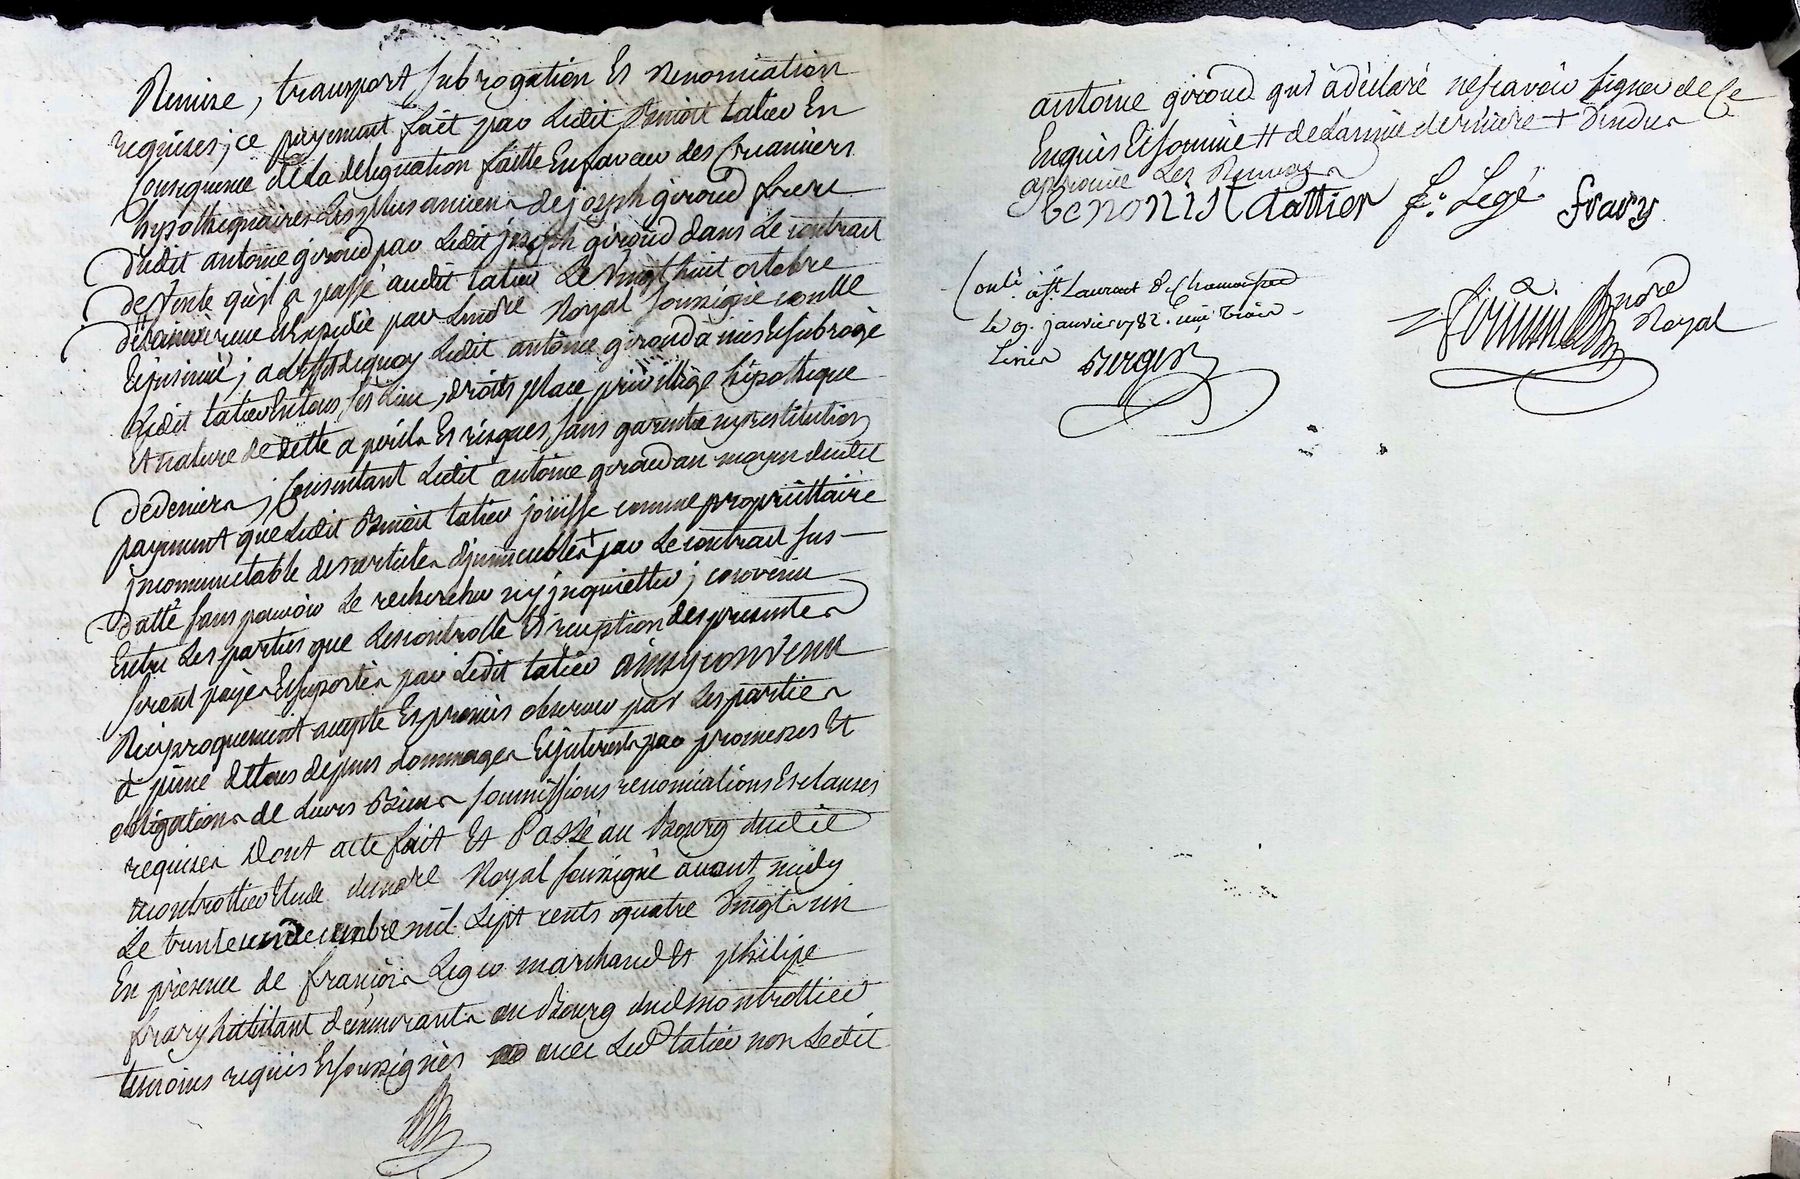 Remise, transport subrogation Et Renonciation
requises; ce payement fait par Ledit Benoit tatier En
Consequence de la deleguation faitte En faveur des Creanciers
hypothequaires Les plus anciens de joseph giroud frere
dudit antoine giroud par Ledit joseph giroud dans Le contrait
de vente qu'il a passé audit tatier Le vingt huit octobre
dernier reçue Et Expedié par Le nore Royal soussigné controllé
Et jnsinué; a Leffet dequoy Ledit antoine giroud à mis Et subrogé
Ledit tatier En tous ses Lieu, droits place privillège hipotheque
Et nature de dette a perils Et risques, sans garentie ny restitution
de deniers; Consentant Ledit antoine giroud au moyen dudit
payement que Ledit Benoit tatier joüisse comme propriettaire
jncommutable des articles d'jmmeubles + par Le contrait sus-
datté sans pouvoir Le rechercher ny jnquietter; convenu
Entre Les parties que Les controlle Et reception des presentes
seront payes Et suportés par Ledit tatier ainsy convenu
Reciproquement accepté Et promis observer par Les parties
à peine de tous depens dommages Et jnterests par promesses Et
obligations de Leurs Biens soumissions renonciations Et clauses
requises Dont acte fait Et Passé au Bourg dudit
montrottier Etude du nore Royal soussigné avant midy
Le trente un decembre mil sept cents quatre vingts un
En presence de françois Leger marchand Et philipe
frary habitant demeurants au Bourg dud montrottier
temoins requis Et soussignés avec Led tatier non Ledit
antoine giroud qui à déclaré ne scavoir signer de ce
Enquis Et sommé # de L'année derniere + Vendus
approuvé Les Renvoys
benoist tattier f. Legé frary
Conlé à St Laurent D. Chamousset
Le 9. janvier 1782. reçu trois
Livres Berger
nore
Royal